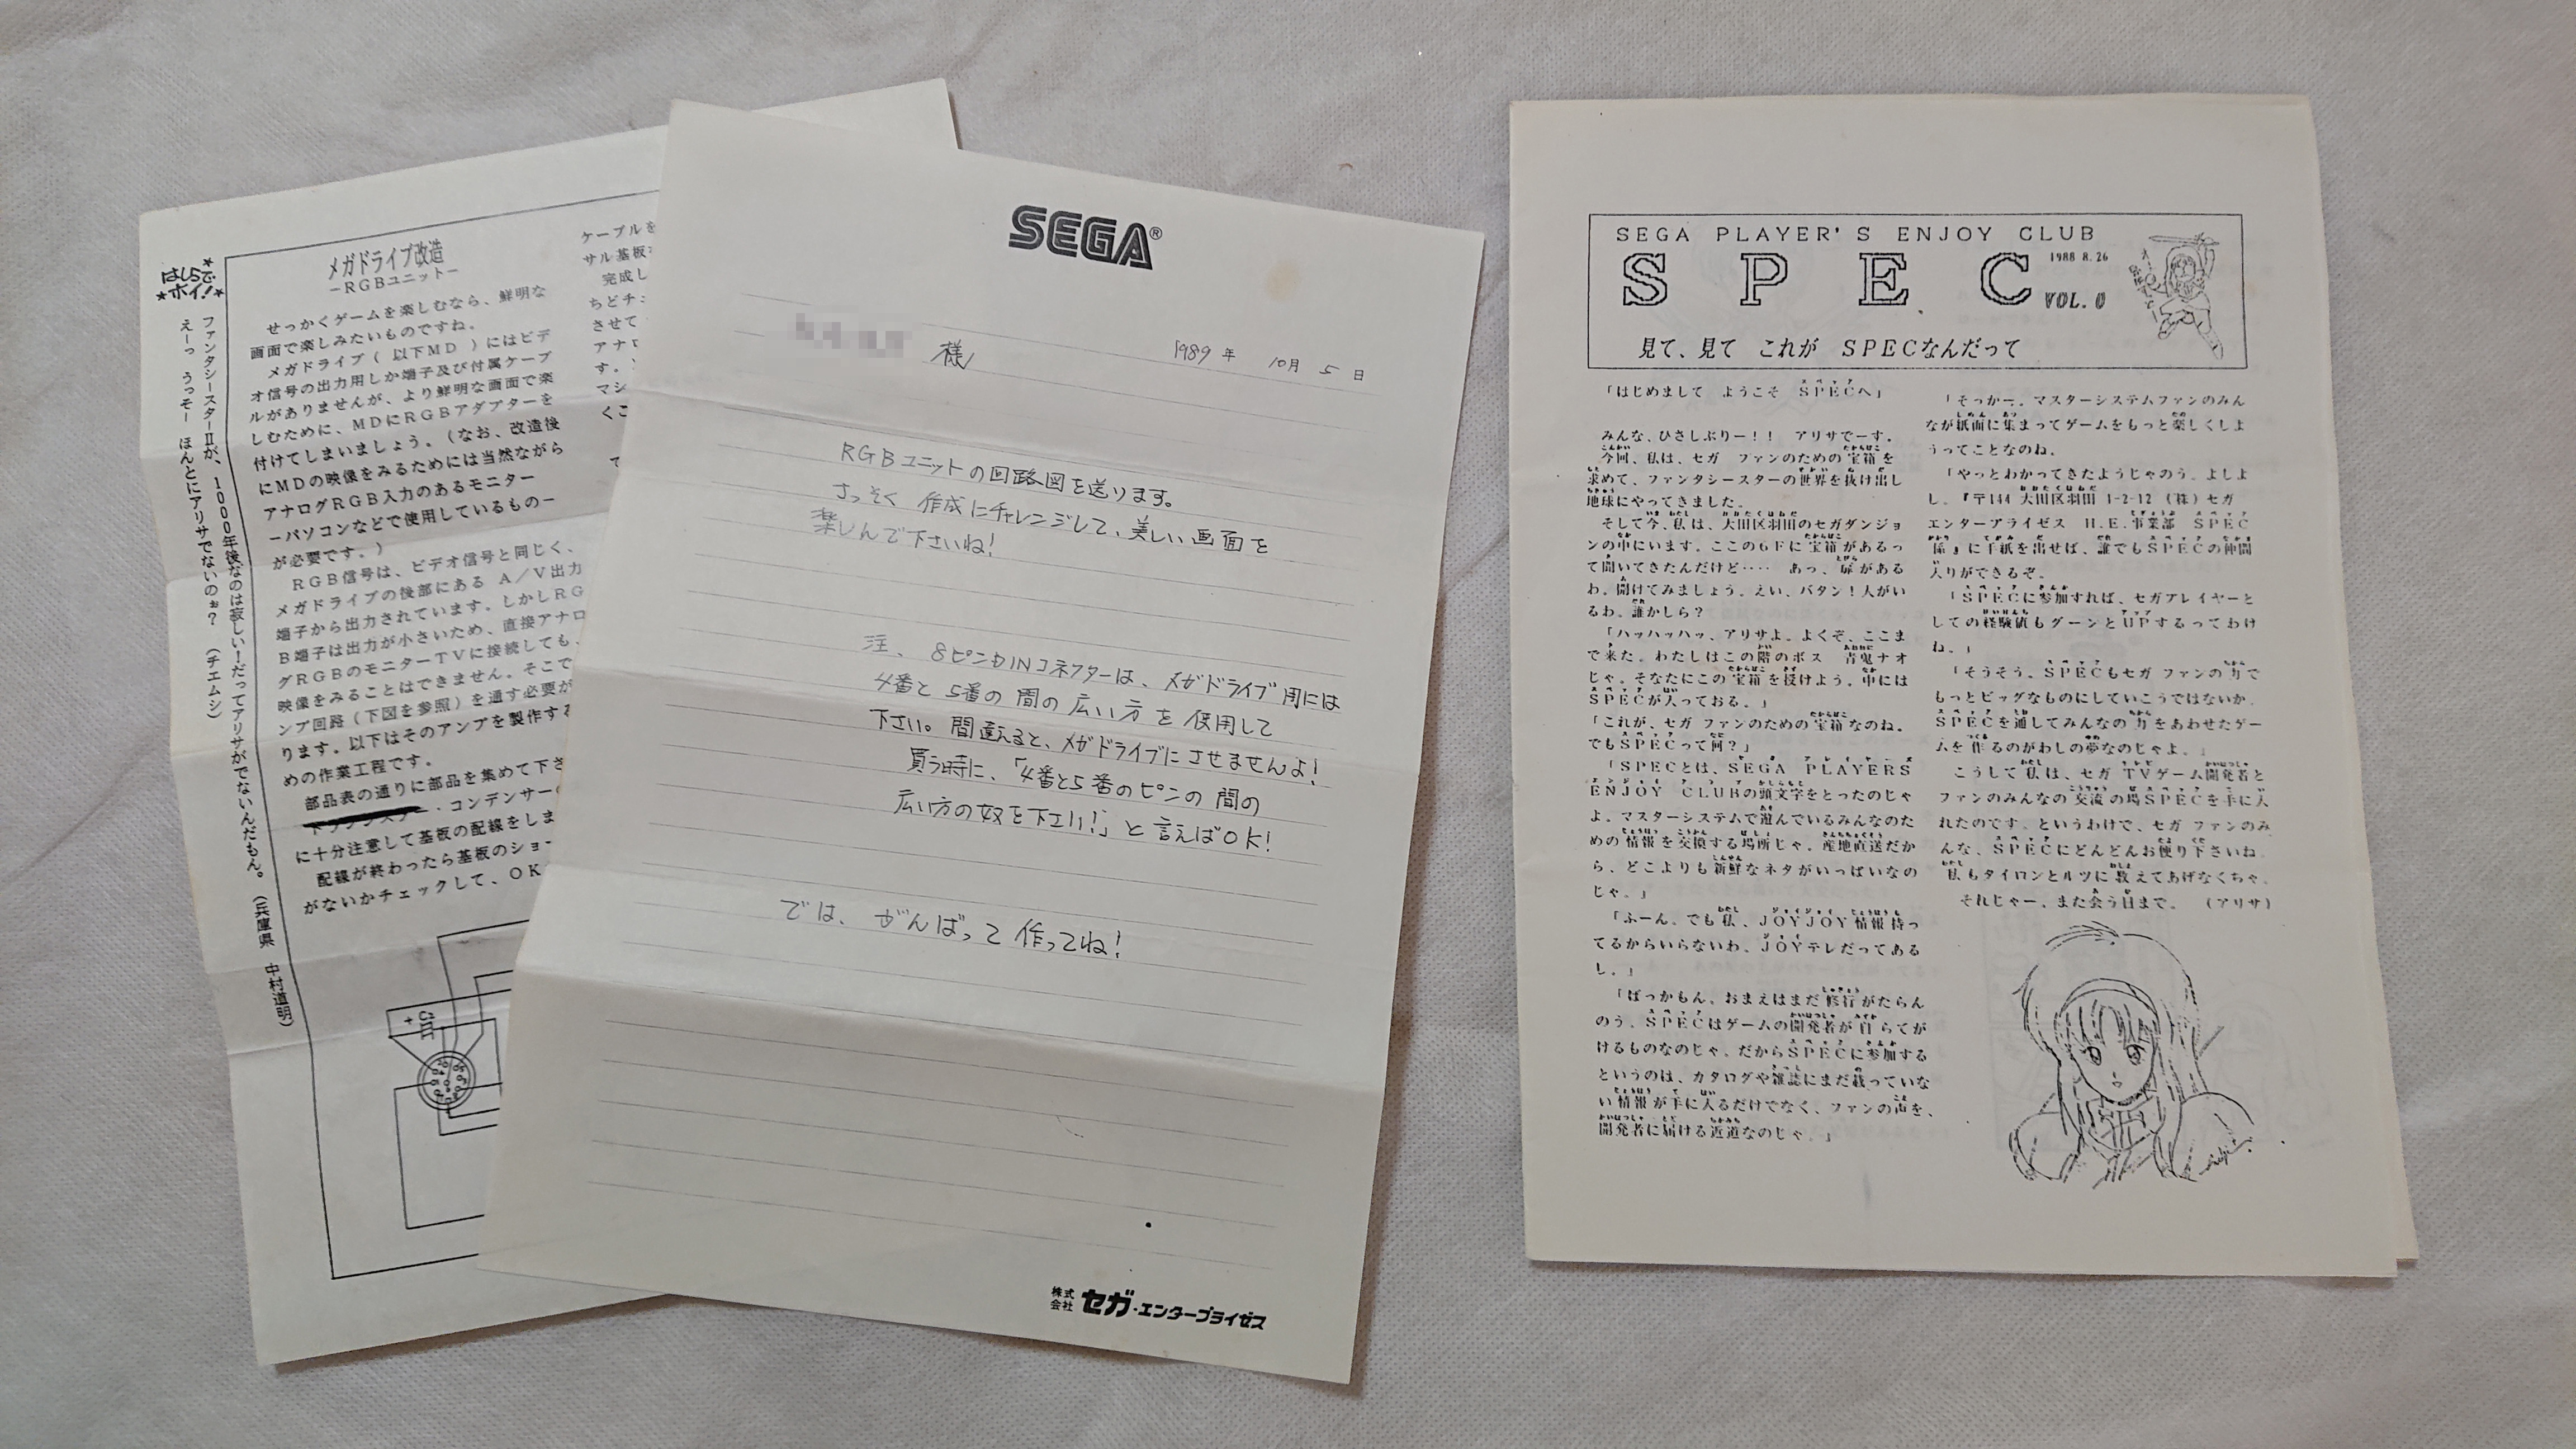 はしらで
ホイ!
ファンタシースターⅡが、1000年後なのは寂しい!だってアリサがでないんだもん。 (兵庫県 中村道明)
えーっ うっそー ほんとにアリサでないのぉ? (チエムシ)
メガドライブ改造
−RGBユニット−
せっかくゲームを楽しむなら、鮮明な
画面で楽しみたいものですね。
メガドライブ( 以下MD )にはビデ
オ信号の出力用しか端子及び付属ケーブ
ルがありませんが、より鮮明な画面で楽
しむために、MDにRGBアダプターを
付けてしまいましょう。(なお、改造後
にMDの映像をみるためには当然ながら
アナログRGB入力のあるモニター
−パソコンなどで使用しているもの−
が必要です。)
RGB信号は、ビデオ信号と同じく、
メガドライブの後部にある A/V出力
端子から出力されています。しかしRG
B端子は出力が小さいため、直接アナロ
グRGBのモニターTVに接続しても、
映像をみることはできません。そこで
ンプ回路(下図を参照)を通す必要が
ります。以下はそのアンプを製作する
めの作業工程です。
部品表の通りに部品を集めて下さ
コンデンサー
に十分注意して基板の配線をしま
配線が終わったら基板のショー
がないかチェックして、OK
ケーブルを
サル基板
完成し
ちどチ
させて
アナロ
す。
マシ
くこ
で
SEGA®
様
1989 年 10月 5 日
RGBユニットの回路図を送ります。
さっそく 作成にチャレンジして、美しい画面を
楽しんで下さいね!
注、 8ピンDINコネクターは、メガドライブ用には
4番と 5番の 間の 広い 方 を 使用して
下さい。間違えると、メガドライブにさせませんよ!
買う時に、「4番と5番のピンの 間の
広い方の奴を下さい!」と 言えばOK!
では、がんばって 作ってね!
株式
会社 セガ・エンタープライゼス
SEGA PLAYER'S ENJOY CLUB
SPEC
1988 8.26
VOL. 0
見て、見て これが SPECなんだって
「はじめまして ようこそ SPECへ」
みんな、ひさしぶりー!! アリサでーす。
今回、私は、セガ ファンのための 宝箱を
求めて、ファンタシースターの世界を抜け出し
地球にやってきました。
そして今、私は、大田区羽田のセガダンジョ
ンの中にいます。ここの6Fに宝箱があるっ
て聞いてきたんだけど‥‥ あっ、扉がある
わ。開けてみましょう。えい、バタン!人がい
るわ。誰かしら?
「ハッハッハッ、アリサよ。よくぞ、ここま
で来た。わたしはこの階のボス 青鬼ナオ
じゃ。そなたにこの宝箱を授けよう。中には
SPECが入っておる。」
「これが、セガ ファンのための宝箱なのね。
でもSPECって何?」
「SPECとは、SEGA PLAYERS
ENJOY CLUBの頭文字をとったのじゃ
よ。マスターシステムで遊んでいるみんなのた
めの情報を交換する場所じゃ。産地直送だか
ら、どこよりも新鮮なネタがいっぱいなの
じゃ。」
「ふーん。でも私、JOYJOY情報持っ
てるからいらないわ。JOYテレだってある
し。」
「ばっかもん。おまえはまだ修行がたらん
のう。SPECはゲームの開発者が自らてが
けるものなのじゃ。だからSPECに参加する
というのは、カタログや雑誌にまだ載っていな
い情報が手に入るだけでなく、ファンの声を、
開発者に届ける近道なのじゃ。」
「そっかー。マスターシステムファンのみん
なが紙面に集まってゲームをもっと楽しくしよ
うってことなのね。
「やっとわかってきたようじゃのう。よしよ
し。『〒144 大田区羽田 1-2-12 (株)セガ
エンタープライゼス H.E.事業部 SPEC
係』に手紙を出せば、誰でもSPECの仲間
入りができるぞ。
「SPECに参加すれば、セガプレイヤーと
しての経験値もグーンとUPするってわけ
ね。」
「そうそう。SPECもセガ ファンの力で
もっとビッグなものにしていこうではないか。
SPECを通してみんなの力をあわせたゲー
ムを作るのがわしの夢なのじゃよ。」
こうして私は、セガ TVゲーム開発者と
ファンのみんなの交流の場SPECを手に入
れたのです。というわけで、セガ ファンのみ
んな、SPECにどんどんお便り下さいね。
私もタイロンとルツに教えてあげなくちゃ。
それじゃー、また会う日まで。 (アリサ)